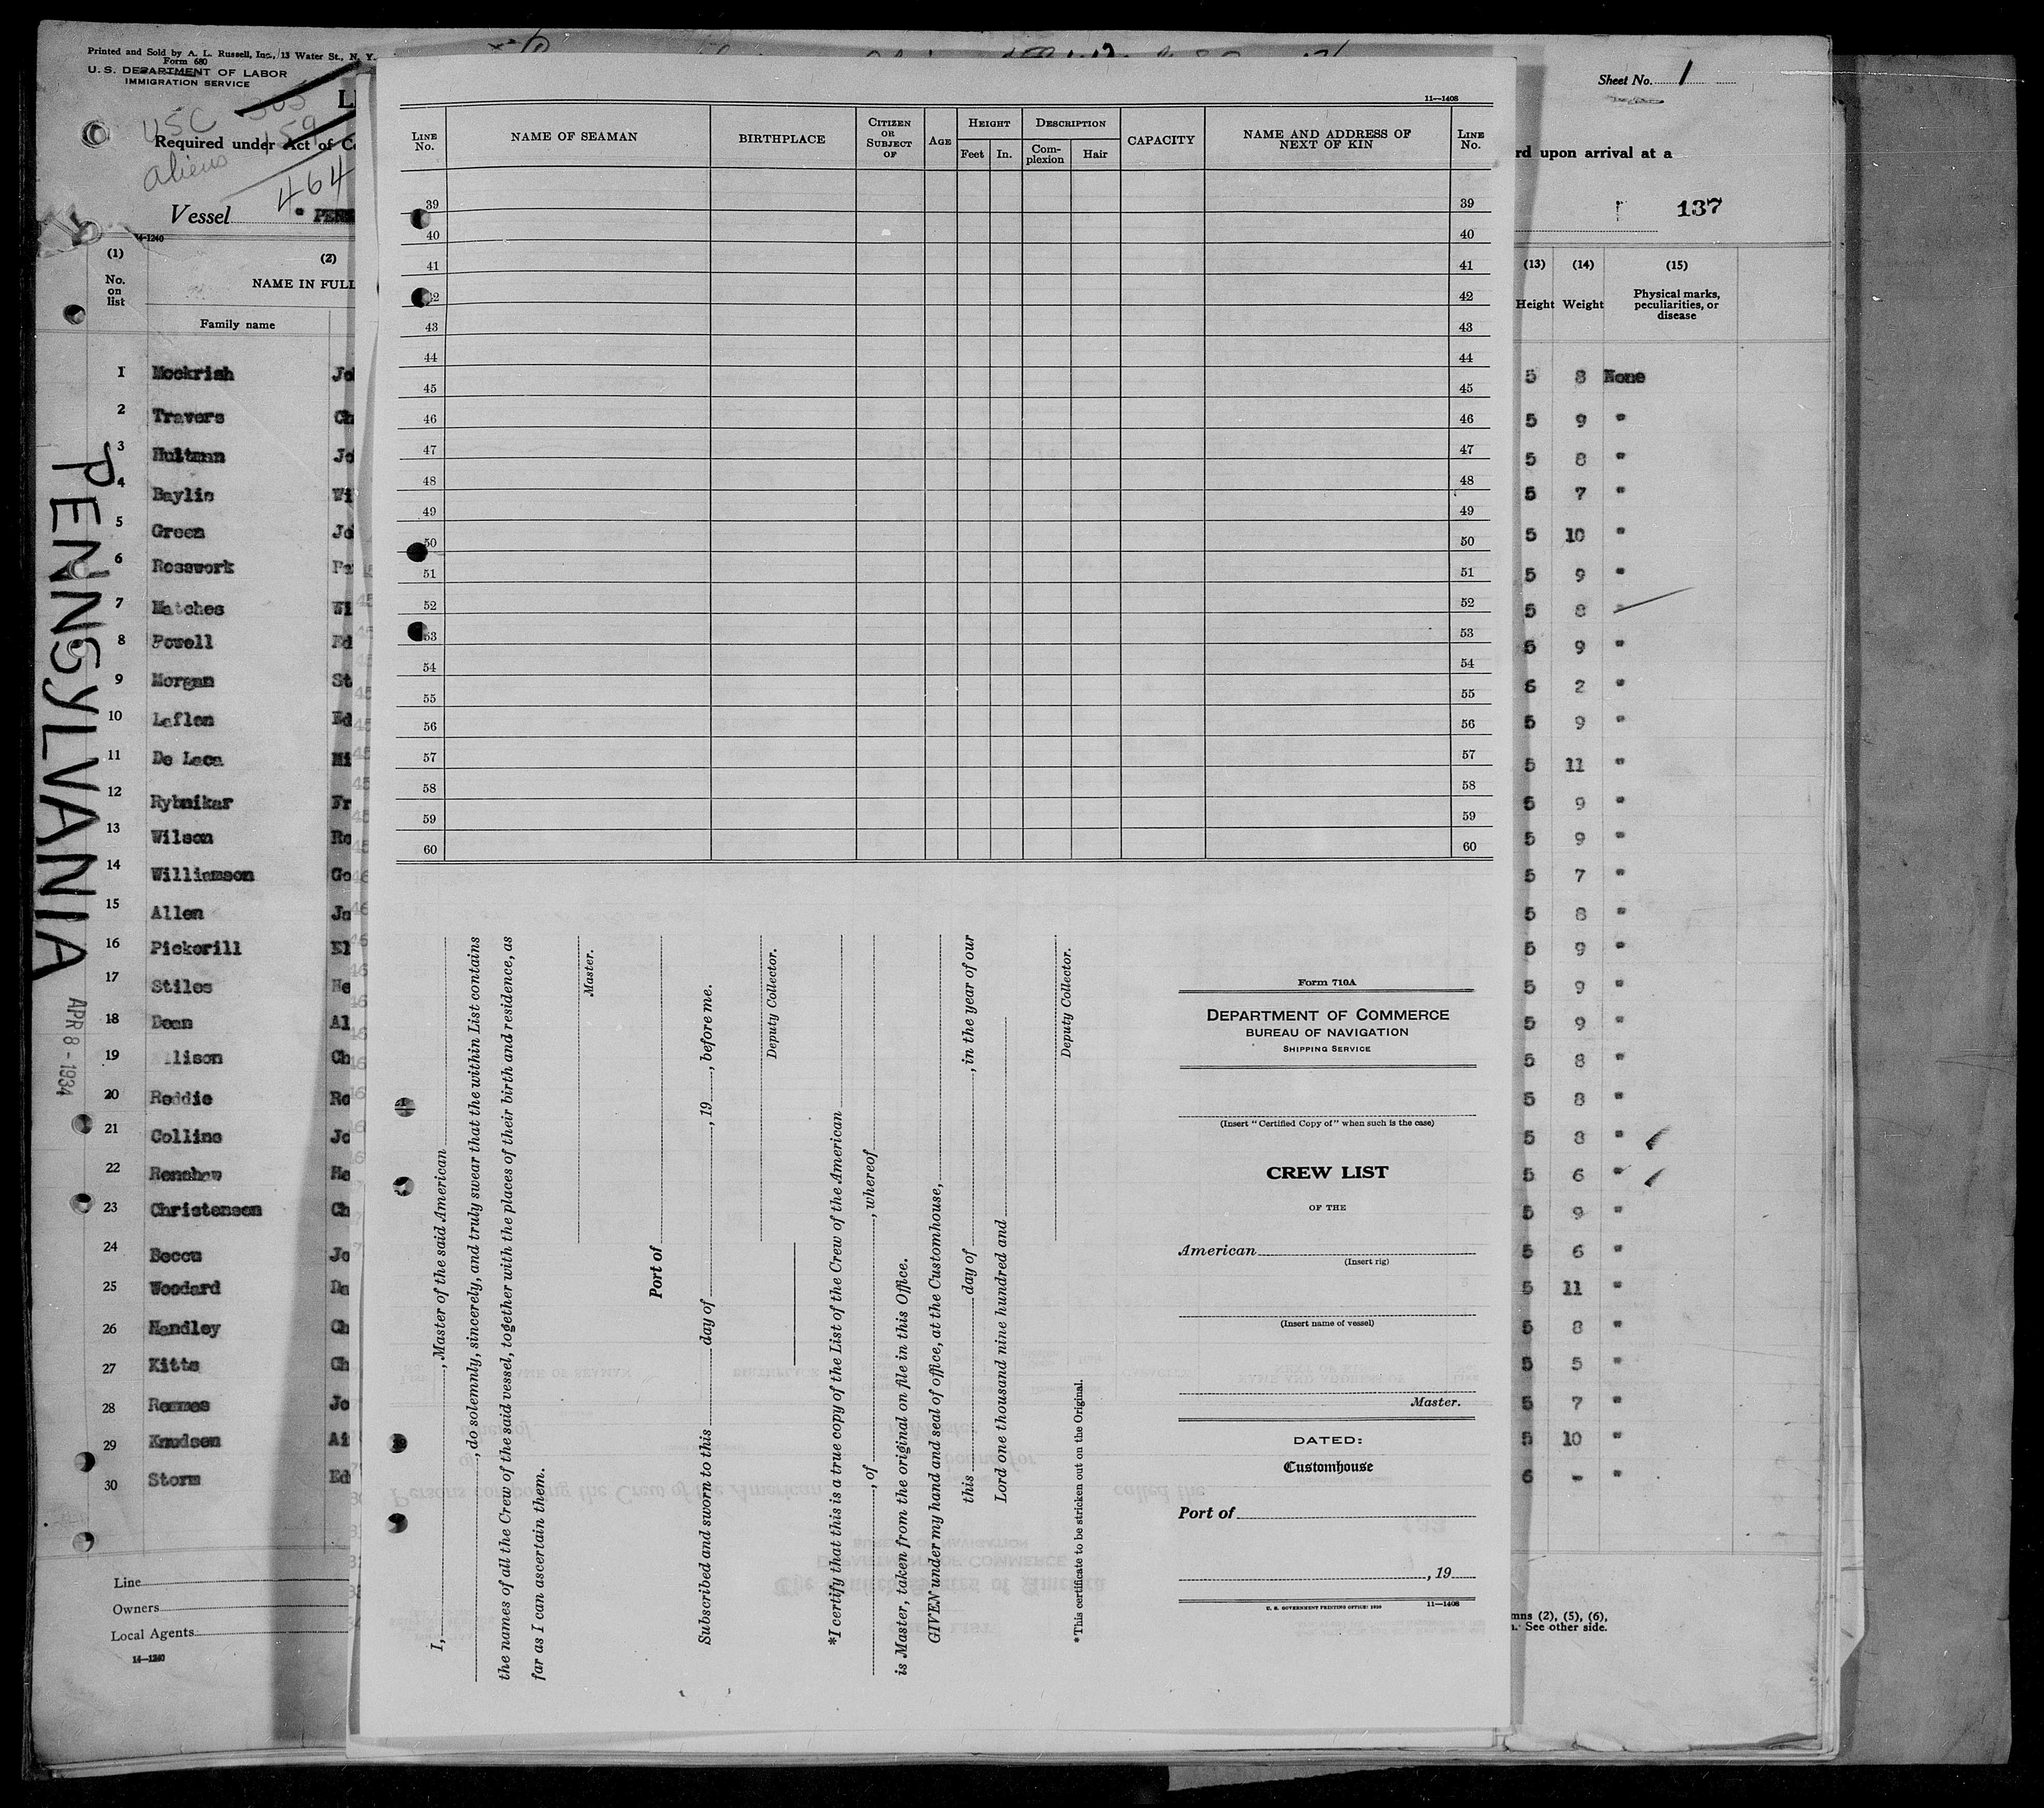 Printed and Sold by A. L. Russell, Inc., 13 Water St., N. Y.
Form 680
U. S. DEPARTMENT OF LABOR
IMMIGRATION SERVICE
USC
159
Aliens
464
Required under Act of
Vessel
14-1240
(1)
No.
on
list
(2)
NAME IN FULL
Family name
1 Mockrish
2 Travers Ch
3 Hultman Jo
4 Baylis Wi
5 Green Jo
6 Rosswork
7 Matches Wi
8 Powell Ed
9 Morgan St
10 Laflen Ed
11 De Laca Mi
12 Rybnikar Fr
13 Wilson Ro
14 Williamson Go
15 Allen Ja
16 Pickerill El
17 Stiles He
18 Dean Al
19 lison Ch
20 Reddie Ro
21 Collins Jo
22 Renshaw Ha
23 Christensen Ch
24 Beccu Jo
25 Woodard Da
26 Handley Ch
27 Kitts Ch
28 Rommes Jo
29 Knudsen Ai
30 Storm Ed
Line
Owners
Local Agents
14-1240
PENNSYLVANIA
APR 8 - 1934
11—1408
LINE No.
NAME OF SEAMAN
BIRTHPLACE
CITIZEN OR SUBJECT OF
AGE
HEIGHT
Feet In.
DESCRIPTION
Com-plexion
Hair
CAPACITY
NAME AND ADDRESS OF NEXT OF KIN
LINE No.
39 39
40 40
41 41
42 42
43 43
44 44
45 45
46 46
47 47
48 48
49 49
50 50
51 51
52 52
53 53
54 54
55 55
56 56
57 57
58 58
59 59
60 60
I, , Master of the said American
, do solemnly, sincerely, and truly swear that the within List contains
the names of all the Crew of the said vessel, together with the places of their birth and residence, as
far as I can ascertain them.
Master.
Port of
Subscribed and sworn to this day of , 19 , before me.
Deputy Collector.
*I certify that this is a true copy of the List of the Crew of the American
, of , whereof
is Master, taken from the original on file in this Office.
GIVEN under my hand and seal of office, at the Customhouse,
this day of , in the year of our
Lord one thousand nine hundred and
Deputy Collector.
*This certificate to be stricken out on the Original.
Form 710A
DEPARTMENT OF COMMERCE
BUREAU OF NAVIGATION
SHIPPING SERVICE
(Insert "Certified Copy of" when such is the case)
CREW LIST
OF THE
American
(Insert rig)
(Insert name of vessel)
Master.
DATED:
Customhouse
Port of
, 19
U. S. GOVERNMENT PRINTING OFFICE: 1930 11—1408
Sheet No. 1
rd upon arrival at a
137
(13) (14) (15)
Height Weight
Physical marks,
peculiarities, or
disease
5 8 None
5 9 "
5 8 "
5 7 "
5 10 "
5 9 "
5 8
5 9 "
6 2 "
5 9 "
5 11 "
5 9 "
5 9 "
5 7 "
5 8 "
5 9 "
5 9 "
5 9 "
5 8 "
5 8 "
5 8 "
5 6 "
5 9 "
5 6 "
5 11 "
5 8 "
5 5 "
5 7 "
5 10 "
6 - "
mns (2), (5), (6),
See other side.